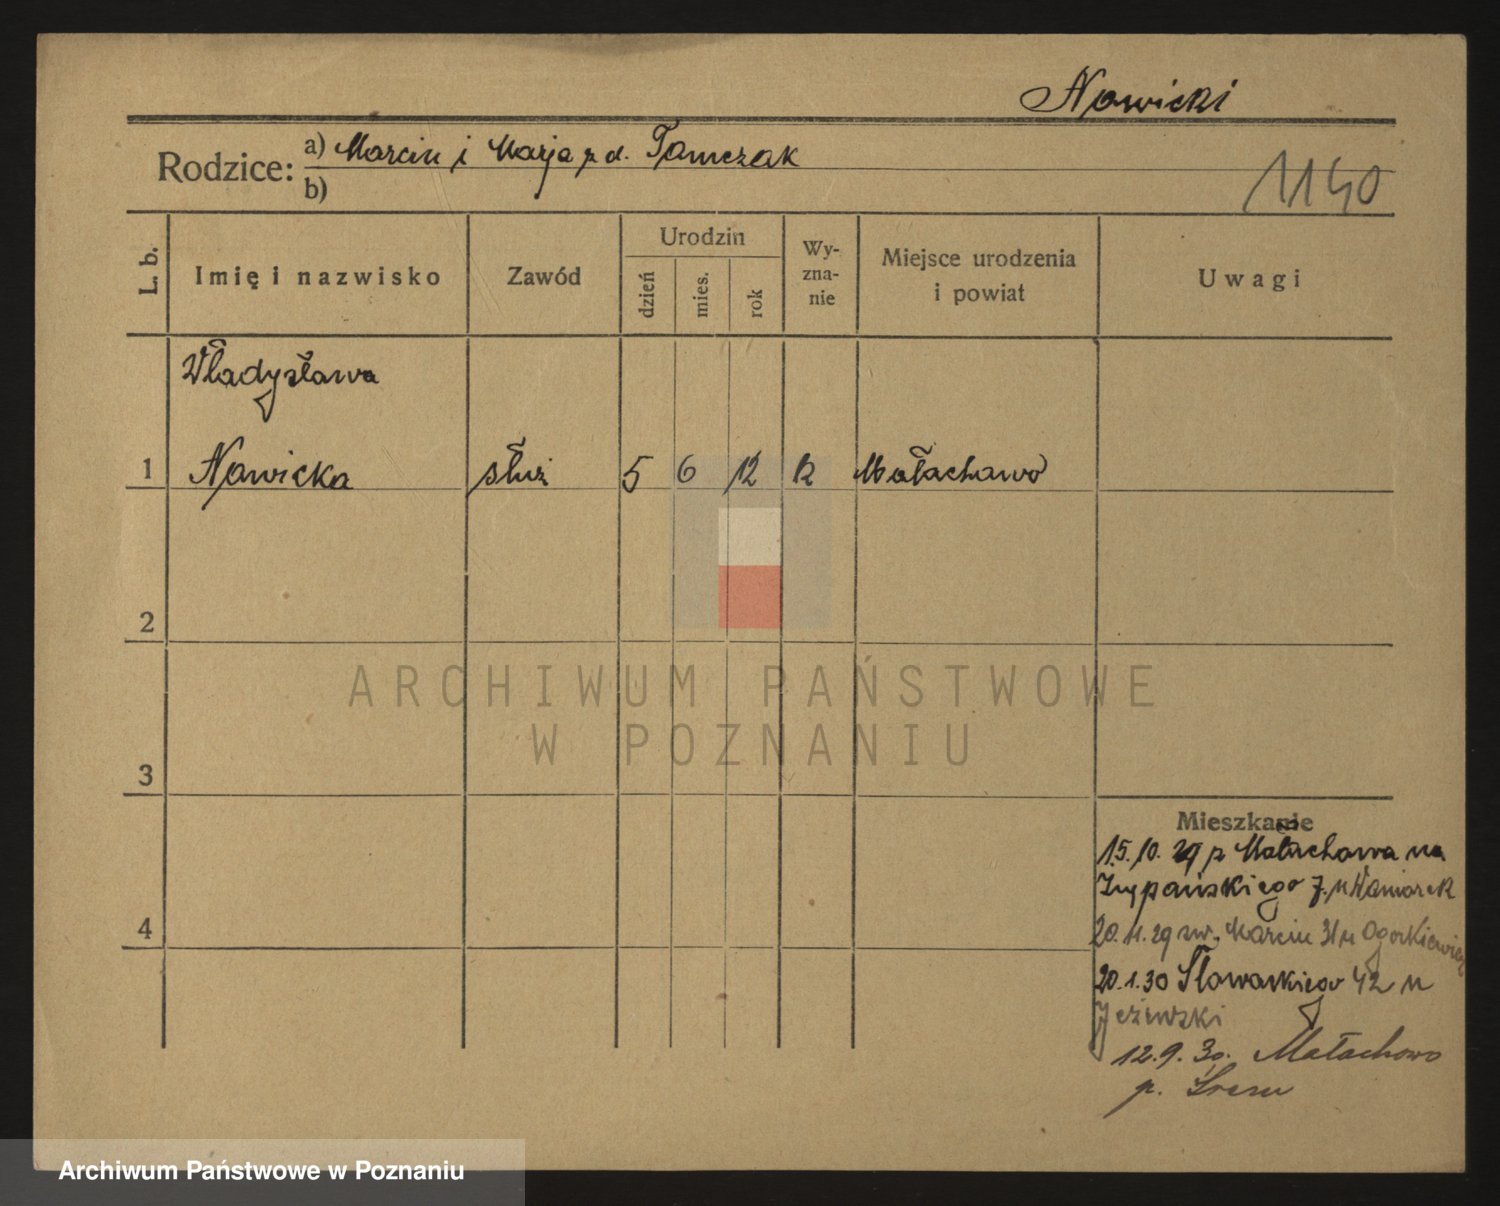 Nowicki
Rodzice: a) Marcin i Marja z d. Tomczak
b)
1140
L. b.
Imię i nazwisko
Zawód
Urodzin
dzień
mies.
rok
Wy-
zna-
nie
Miejsce urodzenia
i powiat
Uwagi
Władysława
1 Nowicka służ 5 6 12 k Małachowo
2
3
4
ARCHIWUM PAŃSTWOWE
W POZNANIU
Mieszkanie
15.10.29 z Małachowa na
7. u
20.11.29 św. Marcin 31 u Ogorkiewicz
20.1.30 Słowackiego 42 u
Jeżewski
12.9.30. Małachowo
p. Śrem
Archiwum Państwowe w Poznaniu